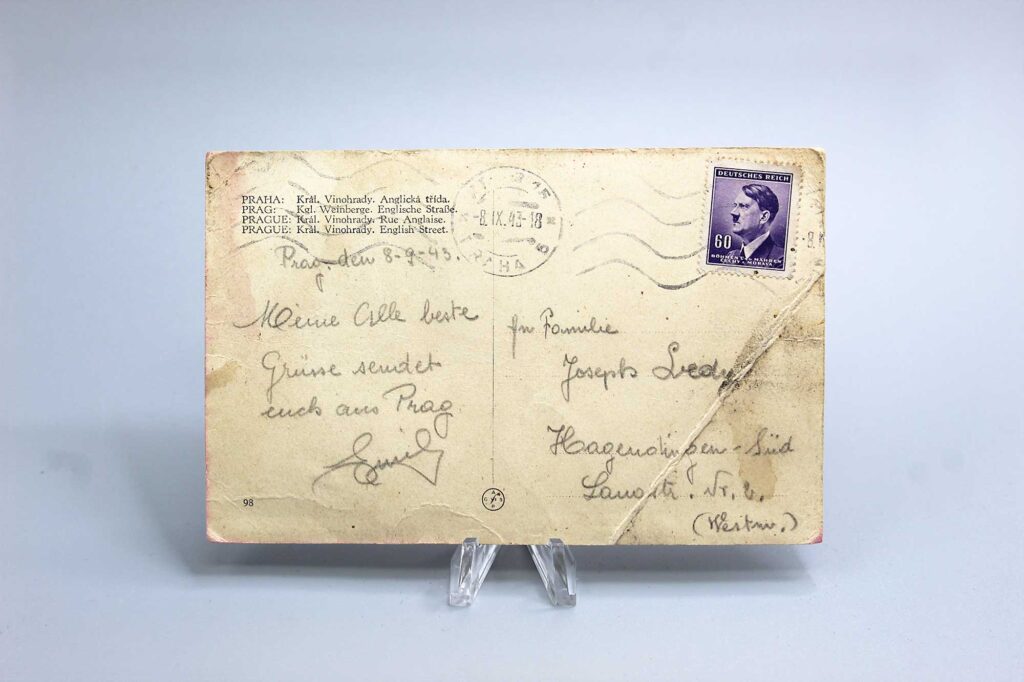 PRAHA: Král. Vinohrady. Anglická třída.
PRAG: Kgl. Weinberge. Englische Straße.
PRAGUE: Král. Vinohrady. Rue Anglaise.
PRAGUE: Král. Vinohrady. English Street.
-8.IX.43-18
PRAHA
DEUTSCHES REICH
60
BÖHMEN U. MÄHREN
ČECHY A MORAVA
Prag, den 8-9-43.
Meine Alle beste
Grüsse sendet
euch aus Prag
Emil
Familie
Joseph
Hagendingen-Süd
Langstr. Nr.
(Westm.)
98